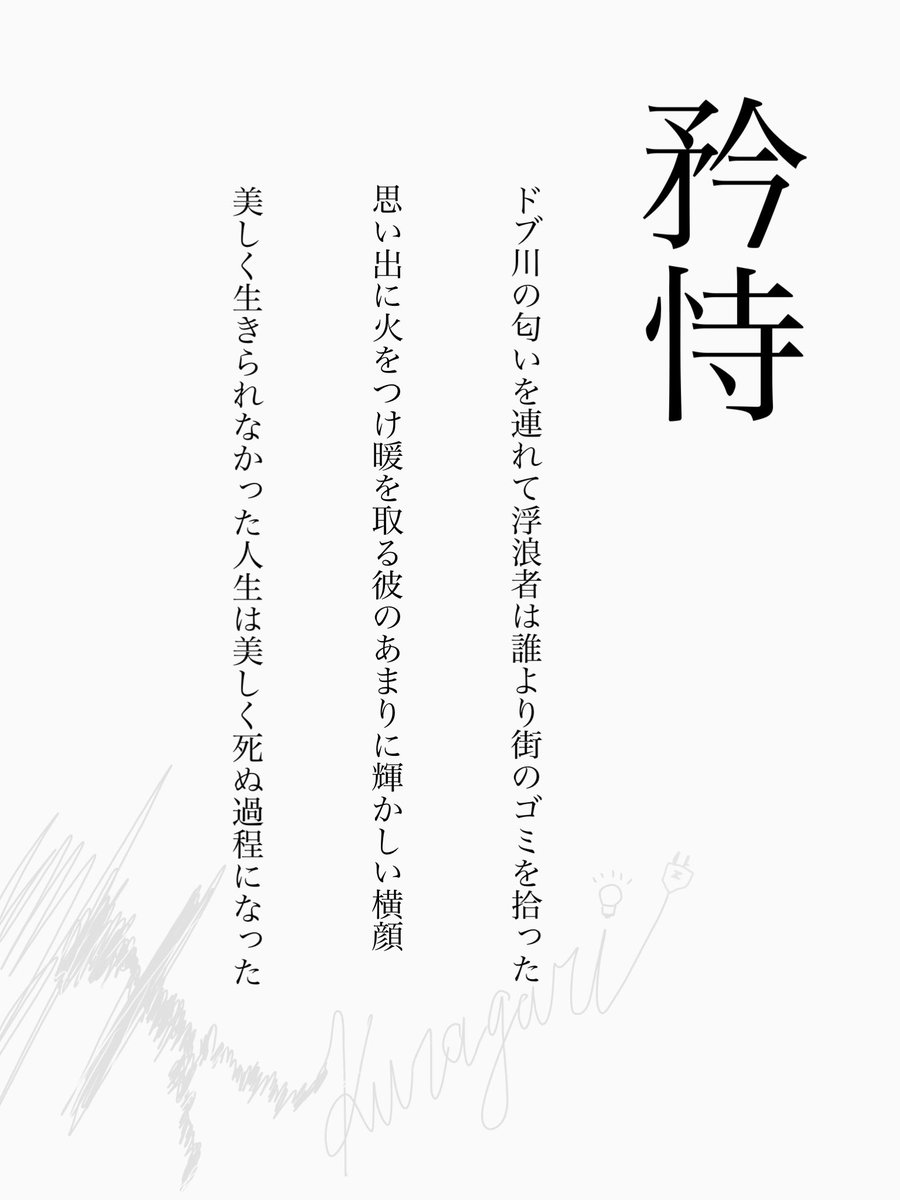 矜恃
ドブ川の匂いを連れて浮浪者は誰より街のゴミを拾った
思い出に火をつけ暖を取る彼のあまりに輝かしい横顔
美しく生きられなかった人生は美しく死ぬ過程になった
Kuragari